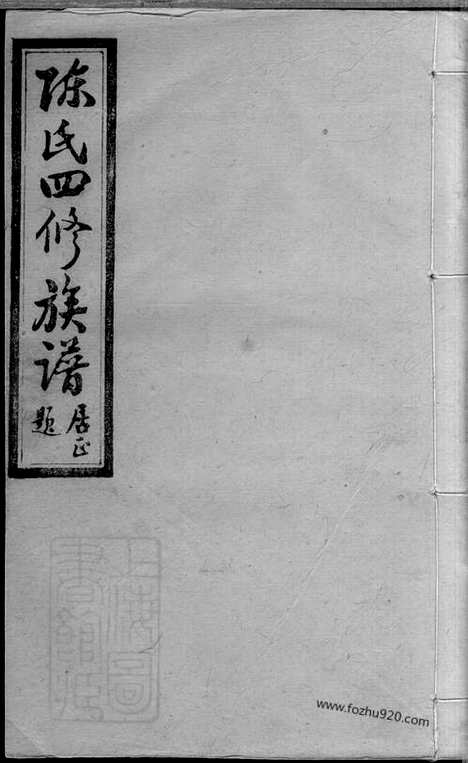 陈氏四修族谱
居正
题
www.fozhu920.com